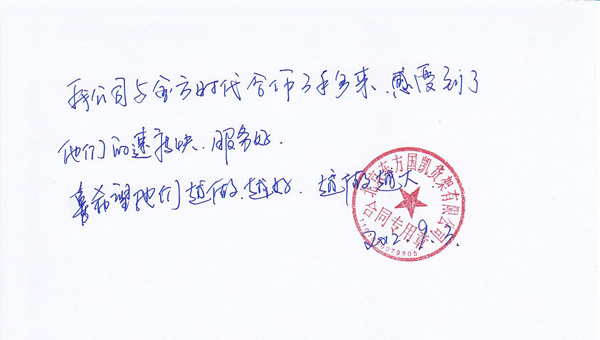 我公司与金方时代合作了多年来、感受到了
他们的速度快、服务好.
希望他们越做越好、越做越大
东方国凯货架有限公司
合同专用章
2012.9.3.